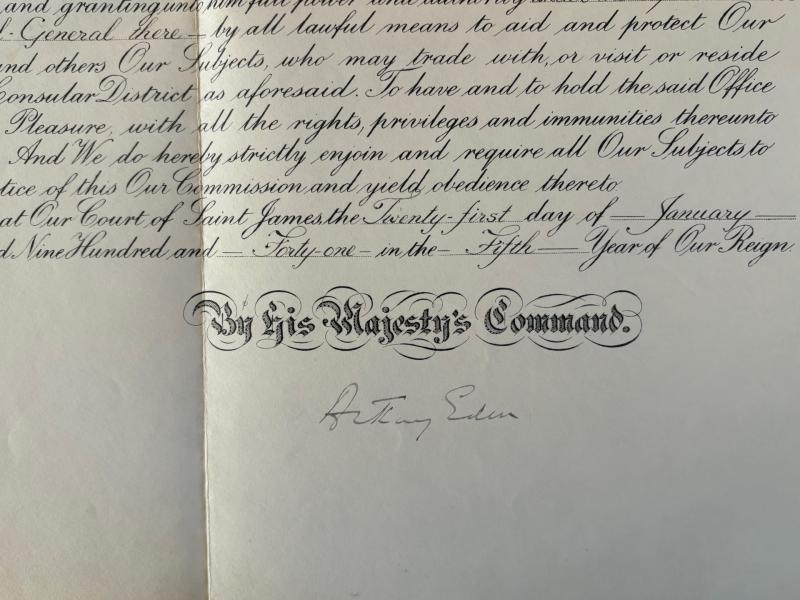 and granting unto him full power and authority
l-General there — by all lawful means to aid and protect Our
nd others Our Subjects, who may trade with, or visit or reside
Consular District as aforesaid. To have and to hold the said Office
Pleasure, with all the rights, privileges and immunities thereunto
And We do hereby strictly enjoin and require all Our Subjects, to
tice of this Our Commission, and yield obedience thereto.
at Our Court of Saint James, the Twenty-first day of — January —
d Nine Hundred, and — Forty-one — in the — Fifth — Year of Our Reign.
By His Majesty's Command.
Anthony Eden